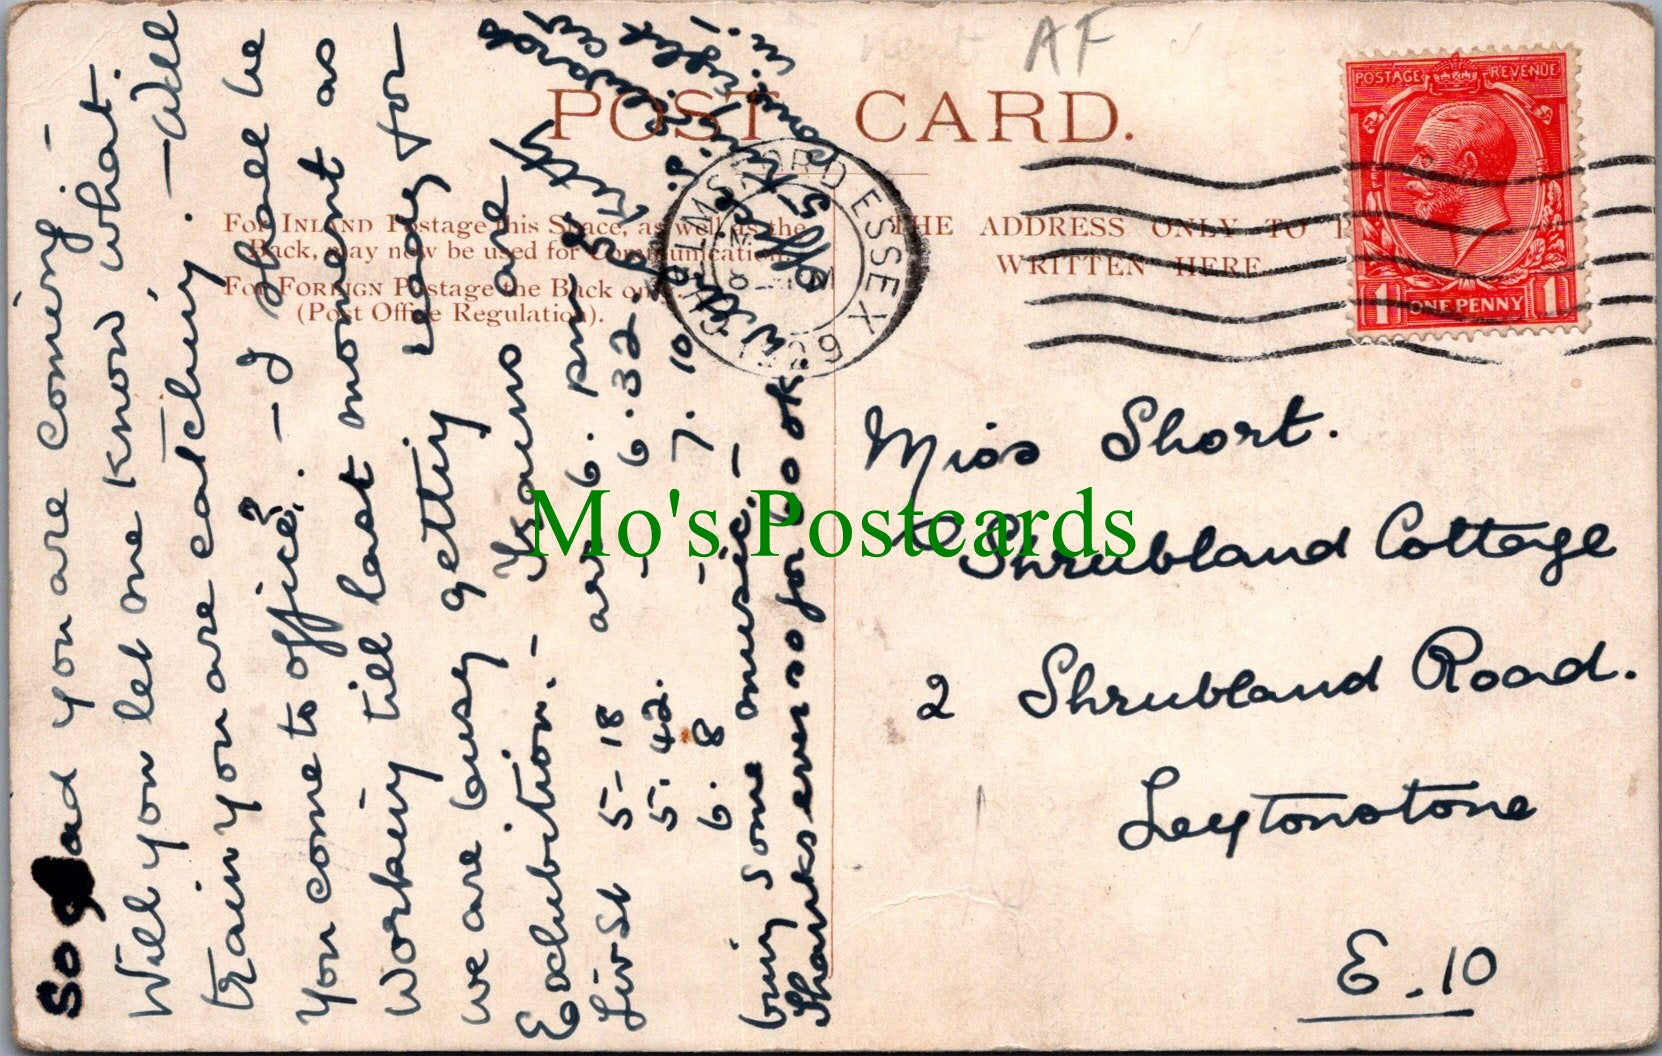 AF
POST CARD.
For INLAND Postage this Space, as well as the
Back, may now be used for Communication.
For FOREIGN Postage the Back only
(Post Office Regulation).
THE ADDRESS ONLY TO
WRITTEN HERE
CHELMSFORD ESSEX
POSTAGE REVENUE
1 ONE PENNY 1
Miss Short.
Shrubland Cottage
2 Shrubland Road.
Leytonstone
E.10
So glad you are coming -
Will you let me know what
train you are catching. - Will
you come to office? - I shall be
working till last moment as
we are busy getting ready for
Exhibition. - Trains are
Liv St 5-18 arr 6. pm
5.42. - 6.32.
6.8 - 7.10
bring some music. -
Thanks ever so for book
Mo's Postcards